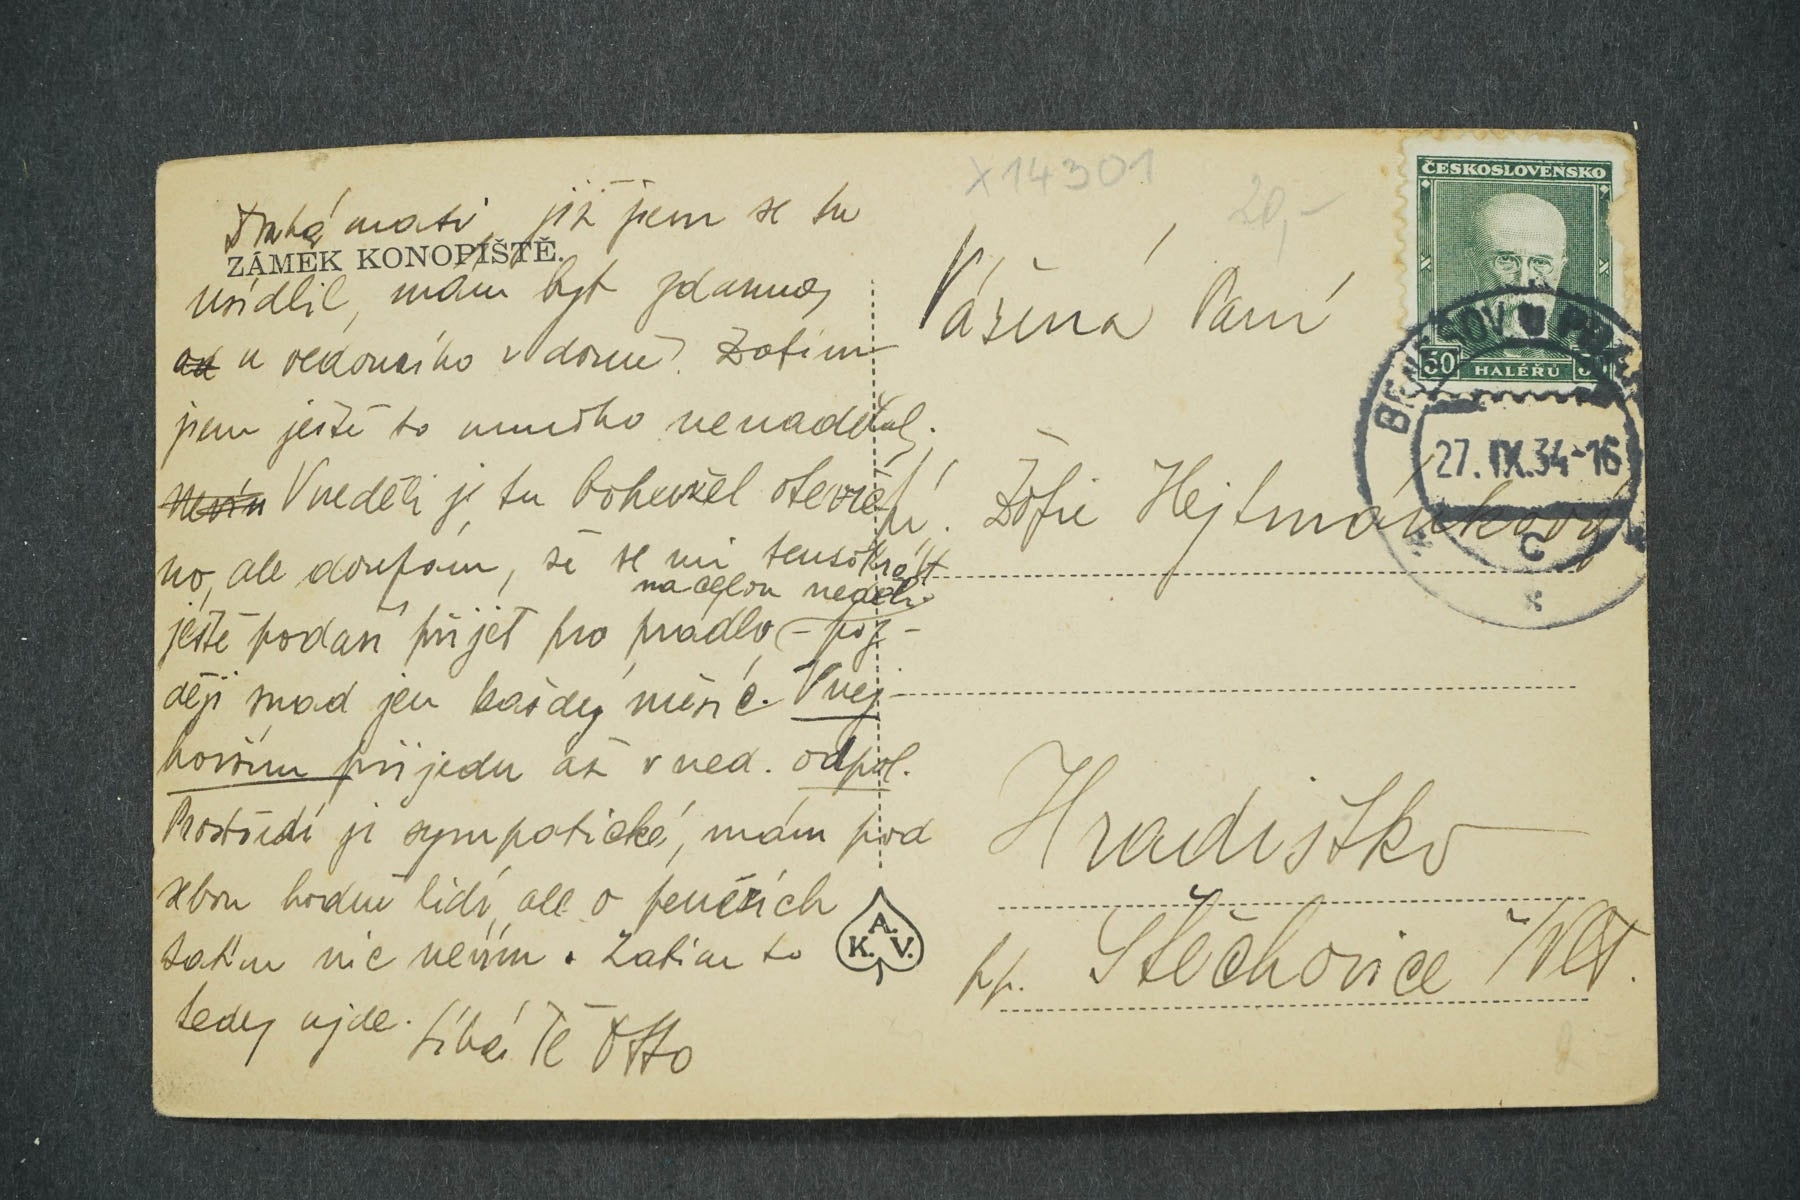 Drahá mati, již jsem se tu
ZÁMEK KONOPIŠTĚ.
usídlil, mám byt zdarma,
u vedoucího v domě. Zatím
jsem ještě to mnoho nenadělal.
V neděli je tu bohužel otevře-
no, ale doufám, že se mi tentokrát
na celou neděli
ještě podaří přijet pro prádlo, – poz-
ději snad jen každý měsíc. V nej-
horším přijedu až v ned. odpol.
Prostředí je sympatické, mám pod
sebou hodně lidí, ale o penězích
zatím nic nevím. Zatím to
tedy ujde. Líbá Tě Otto
K.A.V.
X14301
20,-
ČESKOSLOVENSKO
50 HALÉŘŮ 50
BENEŠOV U PRAHY
27.IX.34-16
C
Vážená Paní
Žofie Hejtmánková
Hradištko
pp. Štěchovice n/Vlt.